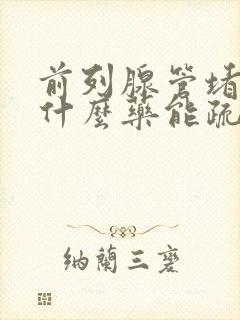 前列腺管堵
什麼藥能疏
纳蘭三磬